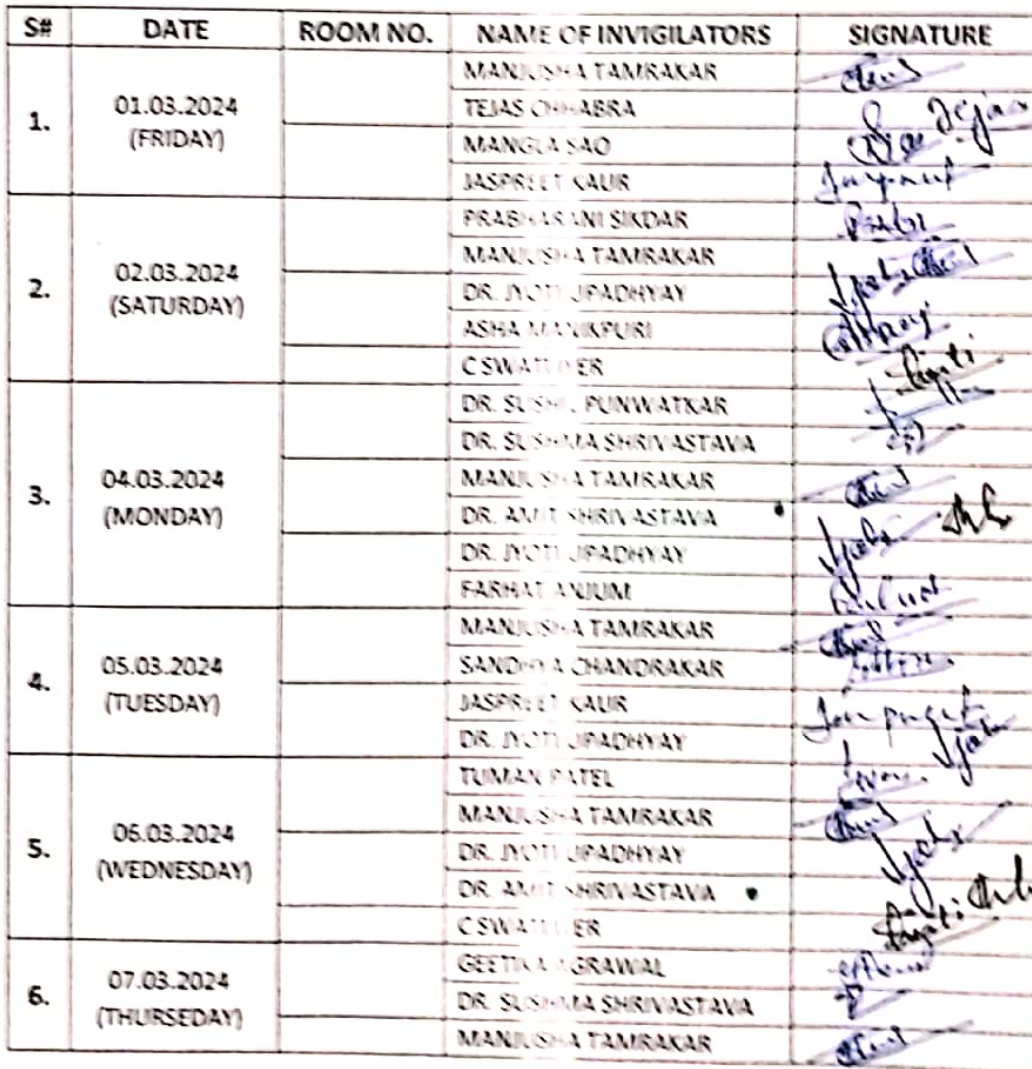 S# DATE ROOM NO. NAME OF INVIGILATORS SIGNATURE
1. 01.03.2024 (FRIDAY)
MANJUSHA TAMRAKAR
TEJAS CHHABRA Tejas
MANGLA SAO
JASPREET KAUR Jaspreet
2. 02.03.2024 (SATURDAY)
PRABHARANI SIKDAR
MANJUSHA TAMRAKAR
DR. JYOTI UPADHYAY Jyoti
ASHA MANIKPURI
C SWATI IYER
3. 04.03.2024 (MONDAY)
DR. SUSHIL PUNWATKAR
DR. SUSHMA SHRIVASTAVA
MANJUSHA TAMRAKAR
DR. AMIT SHRIVASTAVA
DR. JYOTI UPADHYAY Jyoti
FARHAT ANJUM
4. 05.03.2024 (TUESDAY)
MANJUSHA TAMRAKAR
SANDHYA CHANDRAKAR
JASPREET KAUR Jaspreet
DR. JYOTI UPADHYAY Jyoti
5. 06.03.2024 (WEDNESDAY)
TUMAN PATEL
MANJUSHA TAMRAKAR
DR. JYOTI UPADHYAY Jyoti
DR. AMIT SHRIVASTAVA
C SWATI IYER
6. 07.03.2024 (THURSEDAY)
GEETIKA AGRAWAL
DR. SUSHMA SHRIVASTAVA
MANJUSHA TAMRAKAR